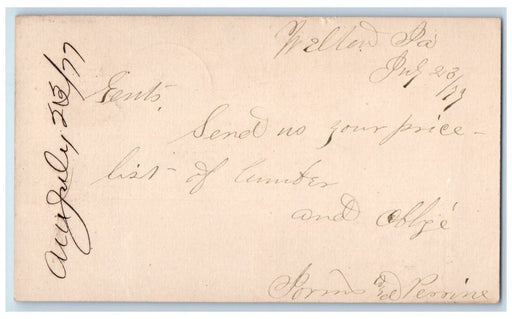 Pa
July 23/77
Gents
Send us your price-
list of lumber
and oblige
& Perrine
July 23/77